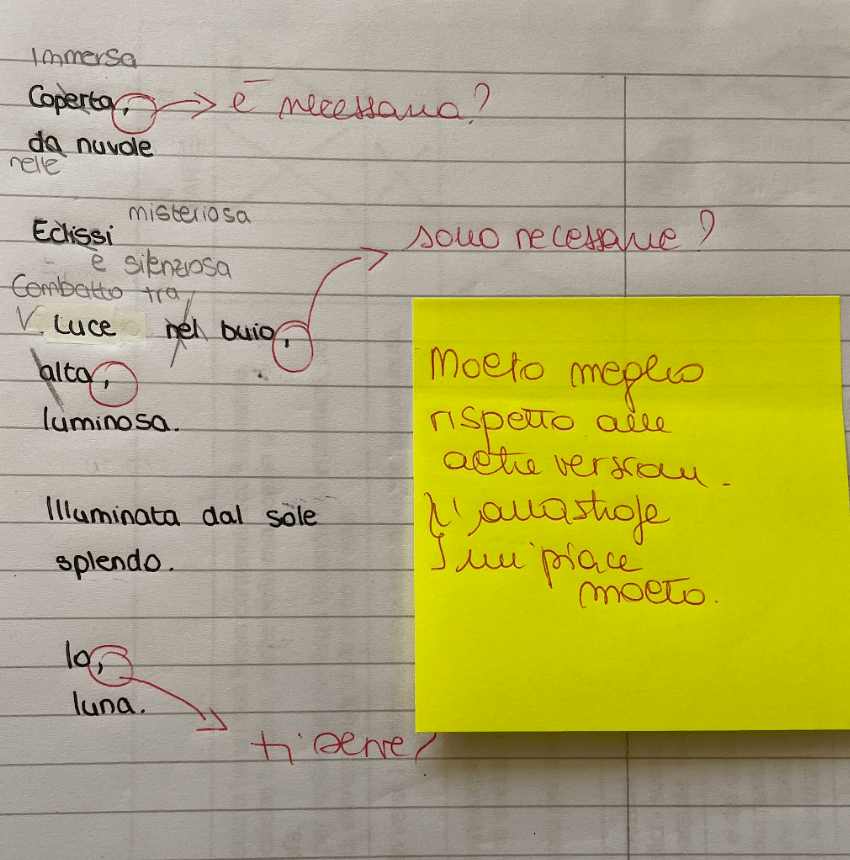 Immersa
Coperta, è necessaria?
da nuvole
nelle
misteriosa
Eclissi
sono necessarie?
e silenziosa
Combatto tra
V Luce nel buio,
alta,
luminosa.
Molto meglio
rispetto alle
altre versioni.
L'anastrofe
mi piace
molto.
Illuminata dal sole
splendo.
Io,
luna.
ti serve?